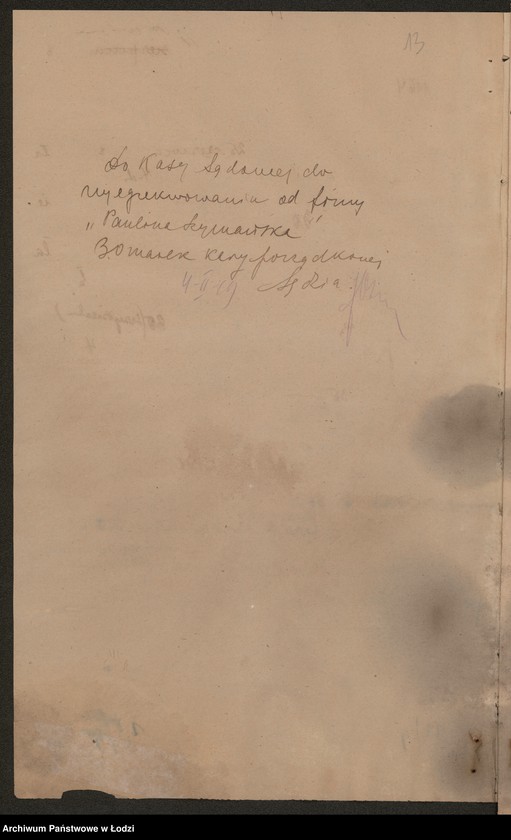 13
Do Kasy Sądowej do
wyegzekwowania od firmy
„Paulina Szymańska”
30 marek kary porządkowej
4-II 19 Sędzia
Archiwum Państwowe w Łodzi